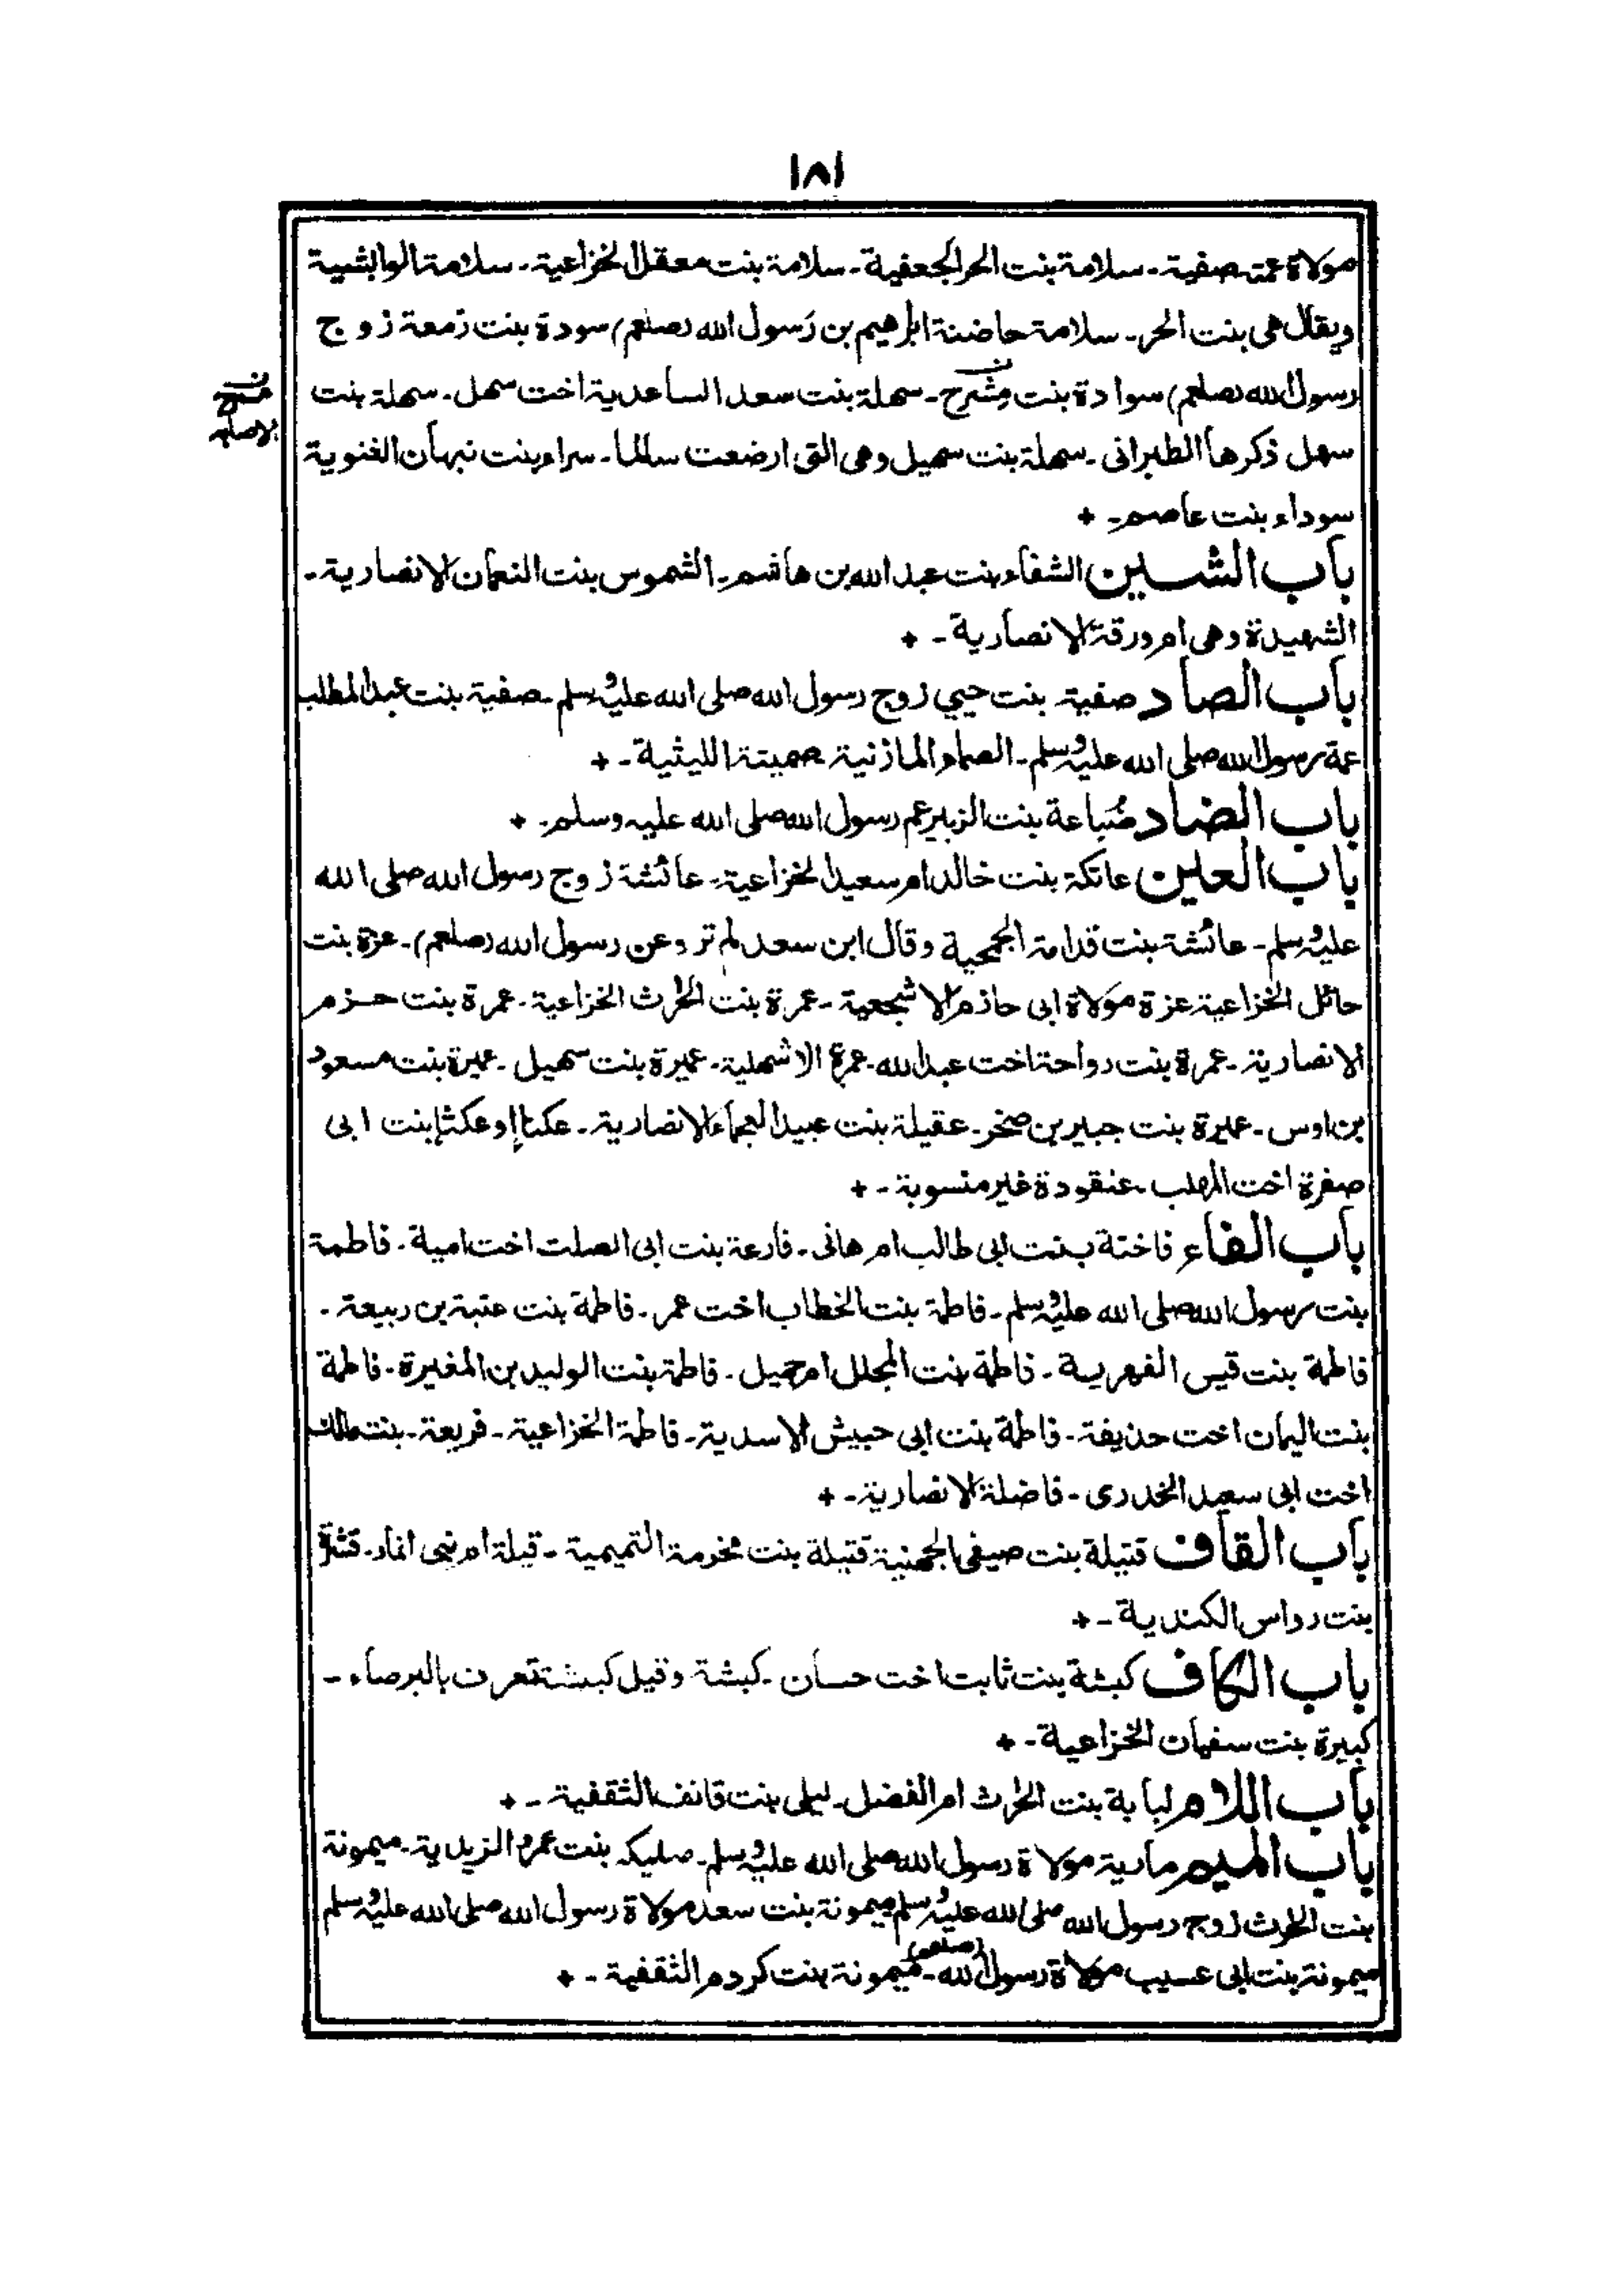 ١٨١
مولاة عمته صفية ـ سلامة بنت الحر الجعفية ـ سلامة بنت معقل الخزاعية ـ سلامة الوابشية
ويقال هى بنت الحر ـ سلامة حاضنة ابرهيم بن رسول الله (صلعم) سودة بنت زمعة زوج
رسول الله (صلعم) سوادة بنت مشرح ـ سهلة بنت سعد الساعدية اخت سهل ـ سهلة بنت
سهل ذكرها الطبرانى ـ سهلة بنت سهيل وهى التى ارضعت سالما ـ سراء بنت نبهان الغنوية
سوداء بنت عاصم ـ +
باب الشين الشفاء بنت عبد الله بن هاشم ـ الشموس بنت النعمان الانصارية ـ
الشهيدة وهى ام ورقة الانصارية ـ +
باب الصاد صفية بنت حيي زوج رسول الله صلى الله عليه وسلم ـ صفية بنت عبد المطلب
عمة رسول الله صلى الله عليه وسلم ـ الصماء المازنية صميتة الليثية ـ +
باب الضاد ضُباعة بنت الزبير عم رسول الله صلى الله عليه وسلم ـ +
باب العين عاتكة بنت خالد ام سعيد الخزاعية ـ عائشة زوج رسول الله صلى الله
عليه وسلم ـ عائشة بنت قدامة الجمحية وقال ابن سعد لم ترو عن رسول الله (صلعم) ـ عزة بنت
حائل الخزاعية عزة مولاة ابى حازم الاشجعية ـ عمرة بنت الحرث الخزاعية ـ عمرة بنت حزم
الانصارية ـ عمرة بنت رواحة اخت عبد الله ـ عمرة الاشهلية ـ عميرة بنت سهيل ـ عميرة بنت مسعود
بن اوس ـ عميرة بنت جبير بن صخر ـ عقيلة بنت عبيد العجماء الانصارية ـ عكناا وعكثا بنت ابى
صفرة اخت المهلب ـ عنقودة غير منسوبة ـ +
باب الفاء فاختة بنت ابى طالب ام هانى ـ فارعة بنت ابى الصلت اخت امية ـ فاطمة
بنت رسول الله صلى الله عليه وسلم ـ فاطمة بنت الخطاب اخت عمر ـ فاطمة بنت عتبة بن ربيعة ـ
فاطمة بنت قيس الفهرية ـ فاطمة بنت المجلل ام جميل ـ فاطمة بنت الوليد بن المغيرة ـ فاطمة
بنت اليمان اخت حذيفة ـ فاطمة بنت ابى حبيش الاسدية ـ فاطمة الخزاعية ـ فريعة ـ بنت مالك
اخت ابى سعيد الخدرى ـ فاضلة الانصارية ـ +
باب القاف قتيلة بنت صيفى الجهنية قتيلة بنت مخرمة التميمية ـ قيلة ام بنى انمار ـ
بنت رواس الكندية ـ +
باب الكاف كبشة بنت ثابت اخت حسان ـ كبشة وقيل كبيشة تعرف بالبرصاء ـ
كبيرة بنت سفيان الخزاعية ـ +
باب اللام لبابة بنت الحرث ام الفضل ـ ليلى بنت قانف الثقفية ـ +
باب الميم مارية مولاة رسول الله صلى الله عليه وسلم ـ صليكه بنت عمرو الزيدية ـ ميمونة
بنت الحرث زوج رسول الله صلى الله عليه وسلم ميمونة بنت سعد مولاة رسول الله صلى الله عليه وسلم
ميمونة بنت ابى عسيب مولاة رسول الله (صلعم) ـ ميمونة بنت كردم الثقفية ـ +